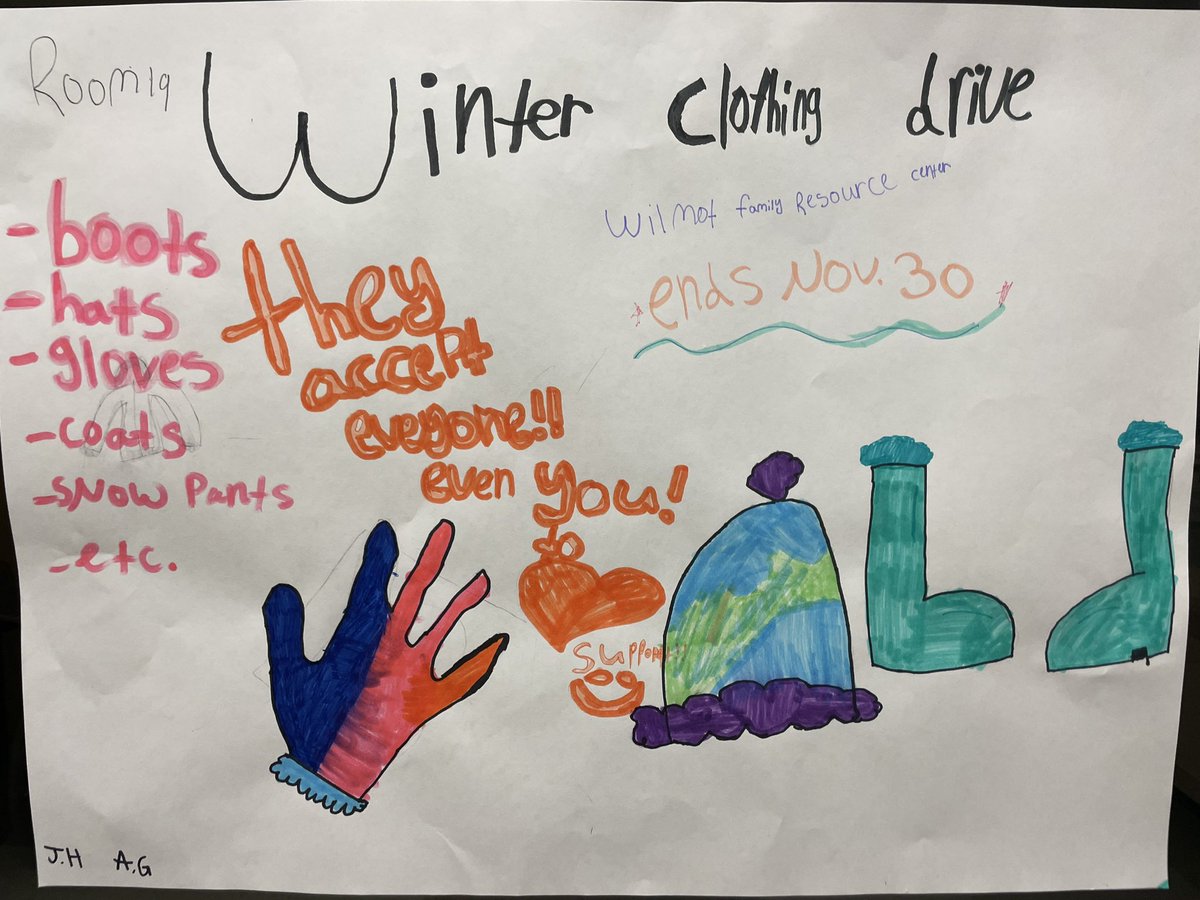 Room 19
Winter clothing drive
Wilmot family Resource center
ends Nov. 30
- boots
- hats
- gloves
- coats
- SNOW Pants
- etc.
they
accept
everyone!!
even you!
to
support!!!
J.H A.G